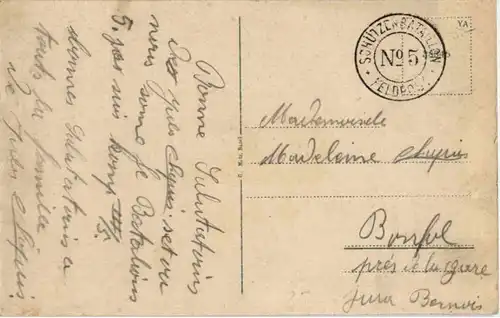 Bonne Salutations
Jules Chapuis
nous some le Batalions
5. je suis komp III/5.
bonnes Salutations a
toute la famille
de Jules Chapuis.
SCHÜTZENBATAILLON
No 5
FELDPOST
Mademoiselle
Madeleine Chapuis
Bonfol
près de la gare
Jura Bernois